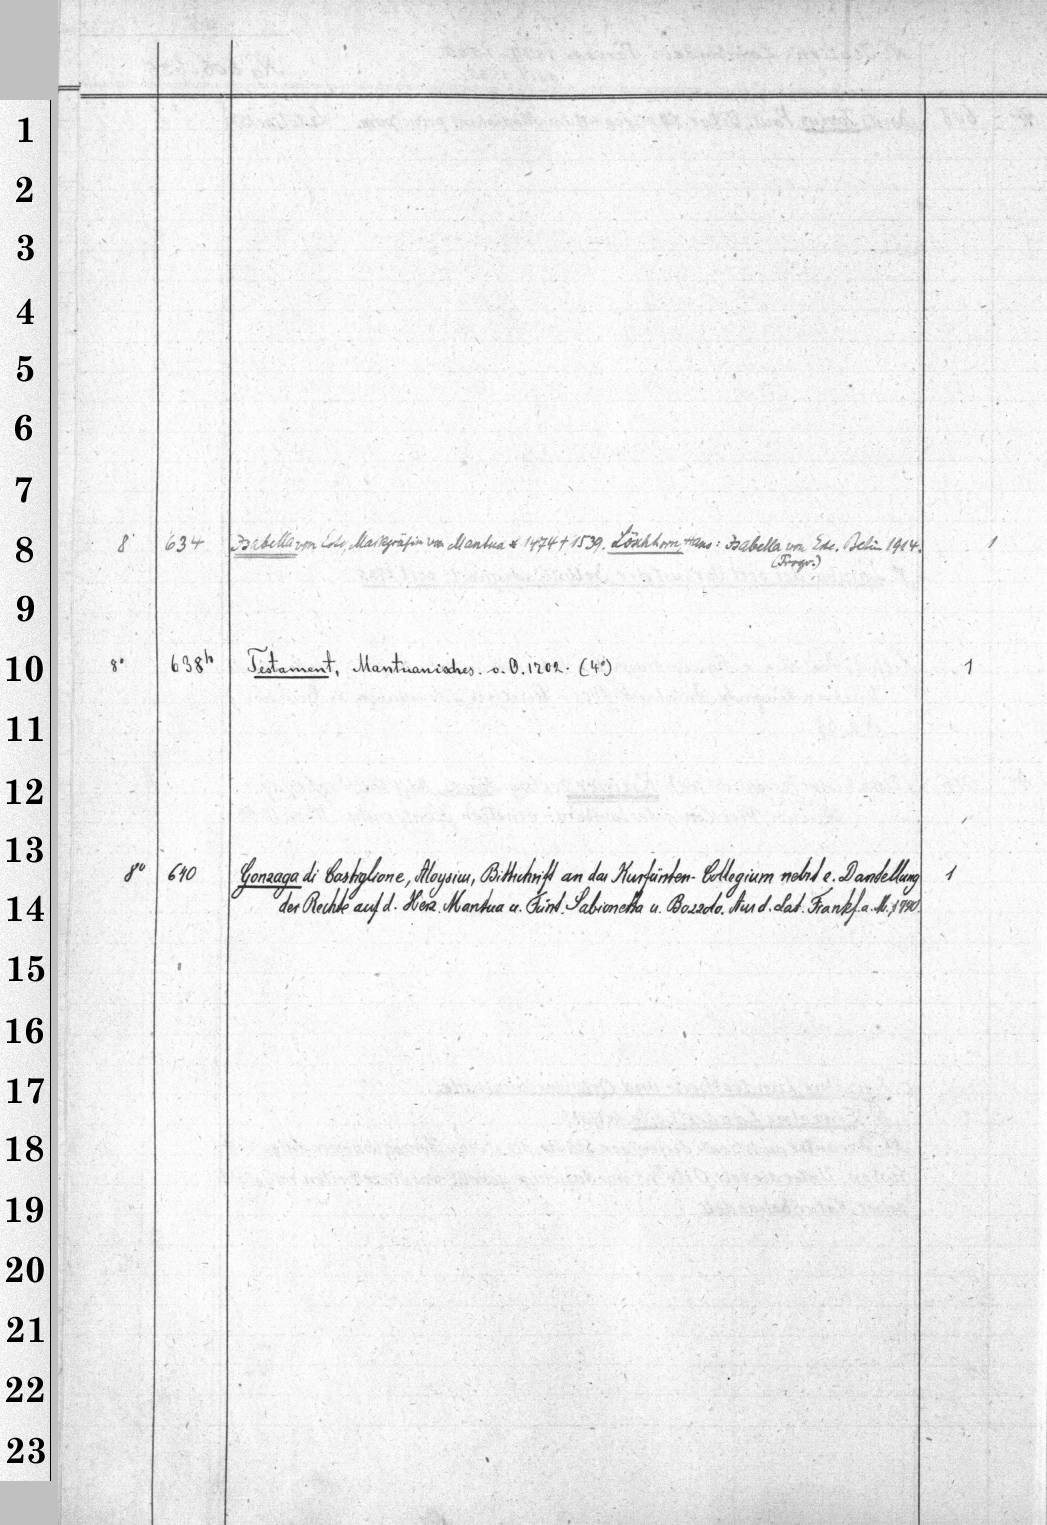 1
2
3
4
5
6
7
8 8° 634 Isabella von Este, Markgräfin von Mantua * 1474 † 1539. Löschhorn, Hans: Isabella von Este. Berlin 1914. 1
(Progr.)
9
10 8° 638h Testament, Mantuanisches. o. O. 1702. (4°) 1
11
12
13 8° 640 Gonzaga di Castiglione, Aloysius, Bittschrift an das Kurfürsten-Collegium nebst e. Darstellung 1
14 der Rechte auf d. Herz. Mantua u. Fürst. Sabionetta u. Bozzolo. Aus d. Lat. Frankf. a. M. 1790.
15
16
17
18
19
20
21
22
23